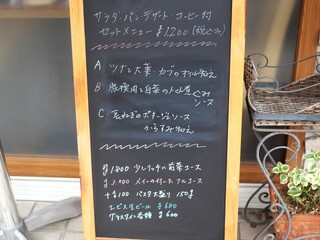 サラダ・パン・デザート コーヒー付
セットメニュー ¥1200(税込み)
A ツナと大葉
B 豚挽肉と白菜のトマト煮
ソース
C 長ねぎのポタージュソース
からすみ和え
¥1800 少しリッチに前菜コース
¥2000 メインの付いた フルコース
+¥100 パスタ大盛り 150g
エビス生ビール ¥600
グラスワイン各種 ¥600